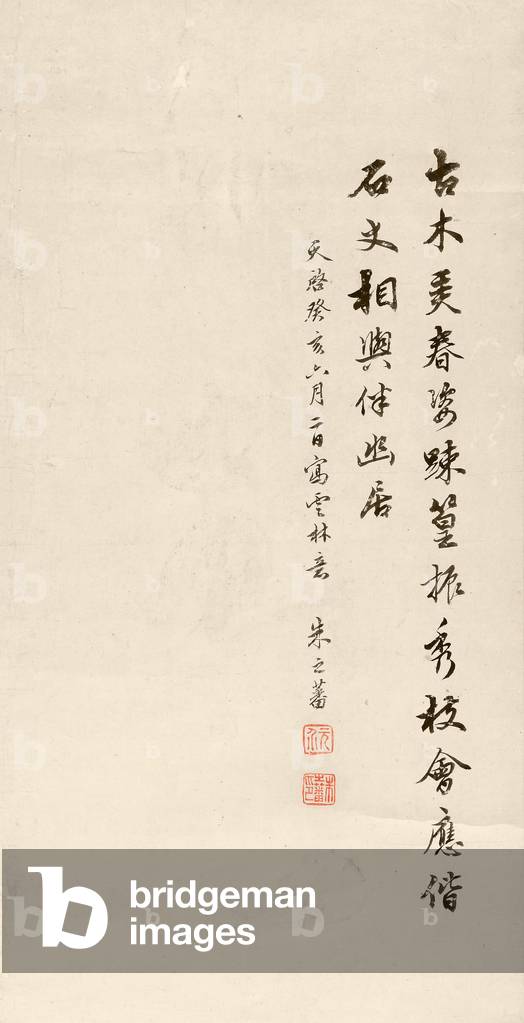 古木春姿踈篁振秀枝會應偕
石丈相與伴幽居
天啓癸亥六月二日寫雲林意 朱之蕃
元介
朱之蕃印
bridgeman
images